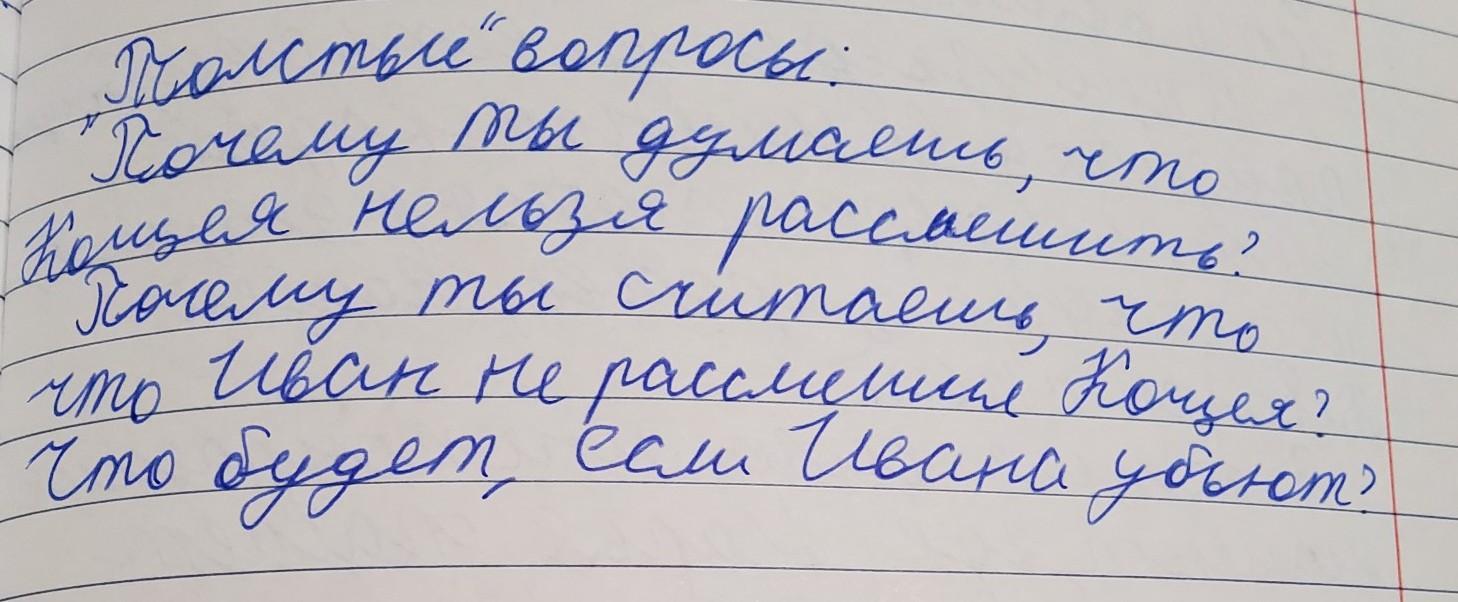 "Толстые" вопросы:
"Почему ты думаешь, что
Кощея нельзя рассмешить?
Почему ты считаешь, что
что Иван не рассмешил Кощея?
Что будет, если Ивана убьют?